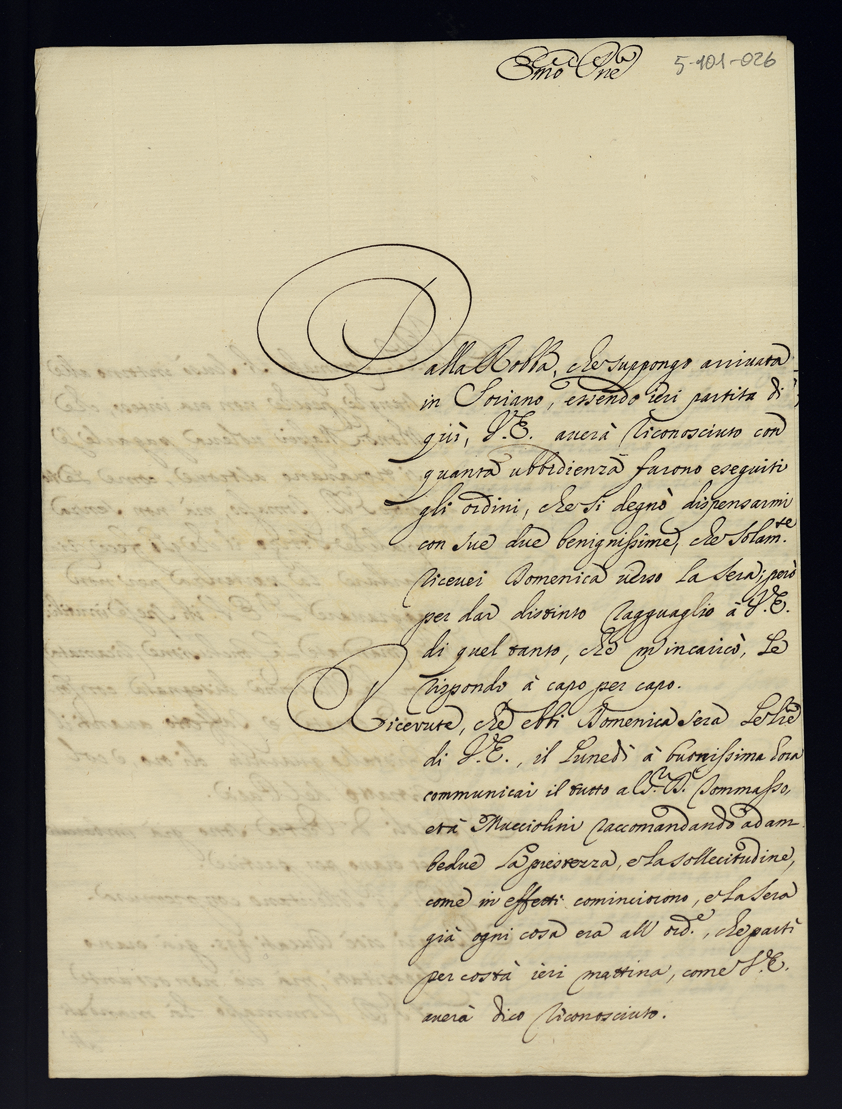 Emo Pñe
5-101-026
Dalla Robba, che suppongo arrivata
in Soriano, essendo ieri partita di
quì, V.E. averà riconosciuto con
quanta ubbidienza furono eseguiti
gli ordini, che si degnò dispensarmi
con sue due benignissime, che solam.te
ricevei Domenica verso la sera; però
per dar distinto ragguaglio à V.E.
di quel tanto, che m'incaricò, Le
rispondo à capo per capo.
Ricevute, che ebbi Domenica sera Le
di V.E., il Lunedì à buonissima hora
communicai il tutto al Sr. D. Tommasso,
et à Mucciolini raccomandando ad am-
bedue La prestezza, e La sollecitudine,
come in effetti cominciorono, e La sera
già ogni cosa era all' ord.e, che partì
per costà ieri mattina, come V.E.
averà dico riconosciuto.